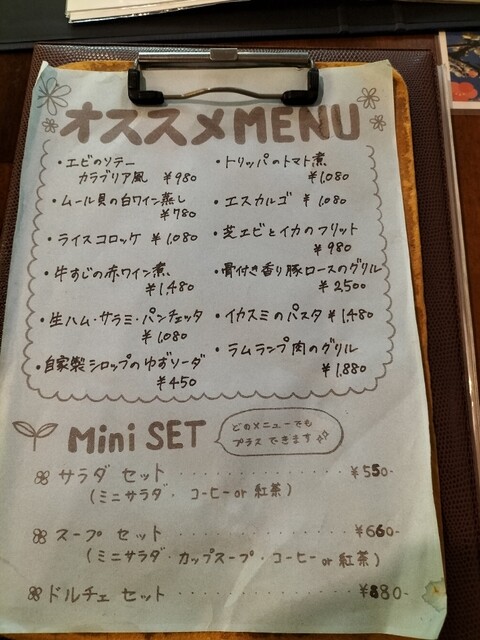 オススメMENU
・エビのソテー
カラブリア風 ¥980
・ムール貝の白ワイン蒸し
¥780
・ライスコロッケ ¥1,080
・牛すじの赤ワイン煮
¥1,480
・生ハム・サラミ・パンチェッタ
¥1,080
・自家製シロップのゆずソーダ
¥450
・トリッパのトマト煮
¥1,080
・エスカルゴ ¥1,080
・芝エビとイカのフリット
¥980
・骨付き香り豚ロースのグリル
¥2,500
・イカスミのパスタ ¥1,480
・ラムランプ肉のグリル
¥1,880
Mini SET
どのメニューでも
プラスできます
サラダセット ・・・・・・・・・・・・・ ¥550-
(ミニサラダ・コーヒーor紅茶)
スープセット ・・・・・・・・・・・・・ ¥660-
(ミニサラダ・カップスープ・コーヒーor紅茶)
ドルチェセット ・・・・・・・・・・・・・ ¥880-